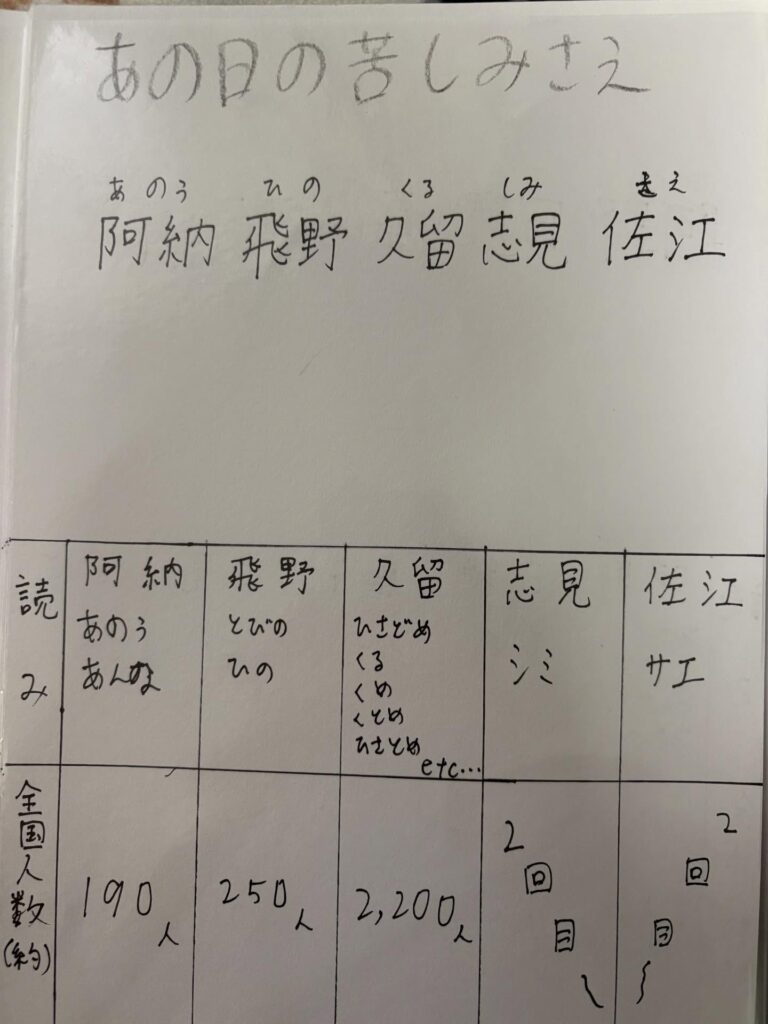 あの日の苦しみさえ
あのう ひの くる しみ さえ
阿納 飛野 久留 志見 佐江
読み
阿納 飛野 久留 志見 佐江
あのう とびの ひさどめ シミ サエ
あんな ひの くる
くめ
くとめ
ひさとめ
etc…
全国人数(約)
190人 250人 2,200人 2回目〜 2回目〜